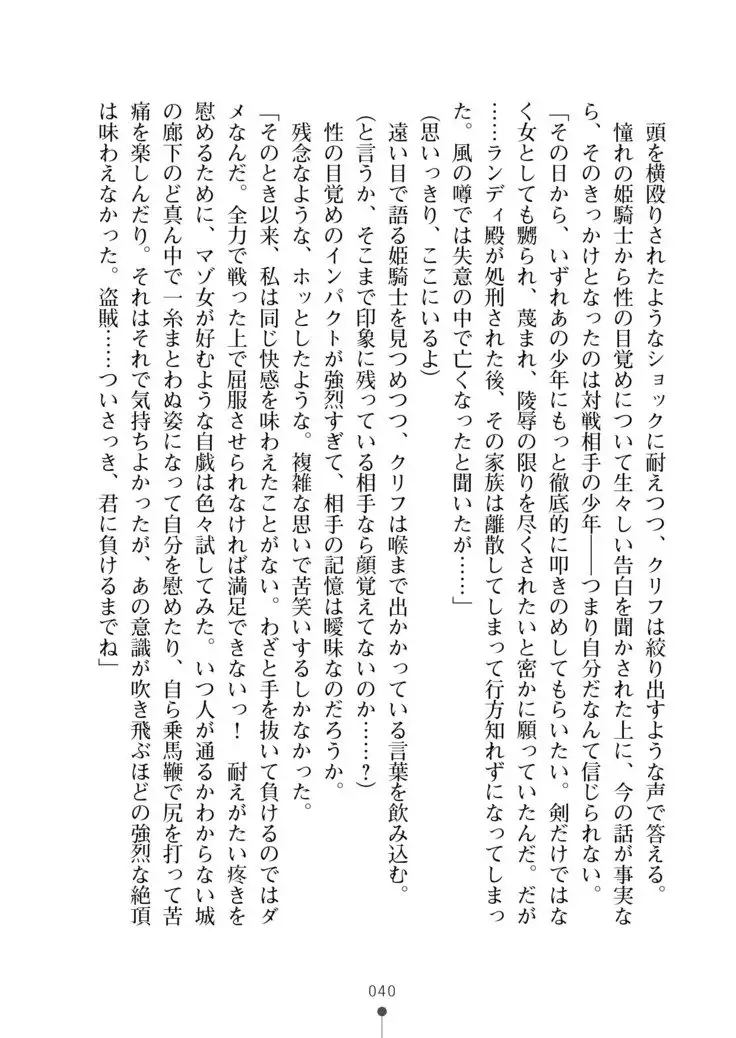 頭を横殴りされたようなショックに耐えつつ、クリフは絞り出すような声で答える。
憧れの姫騎士から性の目覚めについて生々しい告白を聞かされた上に、今の話が事実な
ら、そのきっかけとなったのは対戦相手の少年――つまり自分だなんて信じられない。
「その日から、いずれあの少年にもっと徹底的に叩きのめしてもらいたい。剣だけではな
く女としても嬲られ、蔑まれ、陵辱の限りを尽くされたいと密かに願っていたんだ。だが
……ランディ殿が処刑された後、その家族は離散してしまって行方知れずになってしまっ
た。風の噂では失意の中で亡くなったと聞いたが……」
(思いっきり、ここにいるよ)
遠い目で語る姫騎士を見つめつつ、クリフは喉まで出かかっている言葉を飲み込む。
(と言うか、そこまで印象に残っている相手なら顔覚えてないのか……?)
性の目覚めのインパクトが強烈すぎて、相手の記憶は曖昧なのだろうか。
残念なような、ホッとしたような。複雑な思いで苦笑いするしかなかった。
「そのとき以来、私は同じ快感を味わえたことがない。わざと手を抜いて負けるのではダ
メなんだ。全力で戦った上で屈服させられなければ満足できないっ！　耐えがたい疼きを
慰めるために、マゾ女が好むような自戯は色々試してみた。いつ人が通るかわからない城
の廊下のど真ん中で一糸まとわぬ姿になって自分を慰めたり、自ら乗馬鞭で尻を打って苦
痛を楽しんだり。それはそれで気持ちよかったが、あの意識が吹き飛ぶほどの強烈な絶頂
は味わえなかった。盗賊……ついさっき、君に負けるまでね」
040